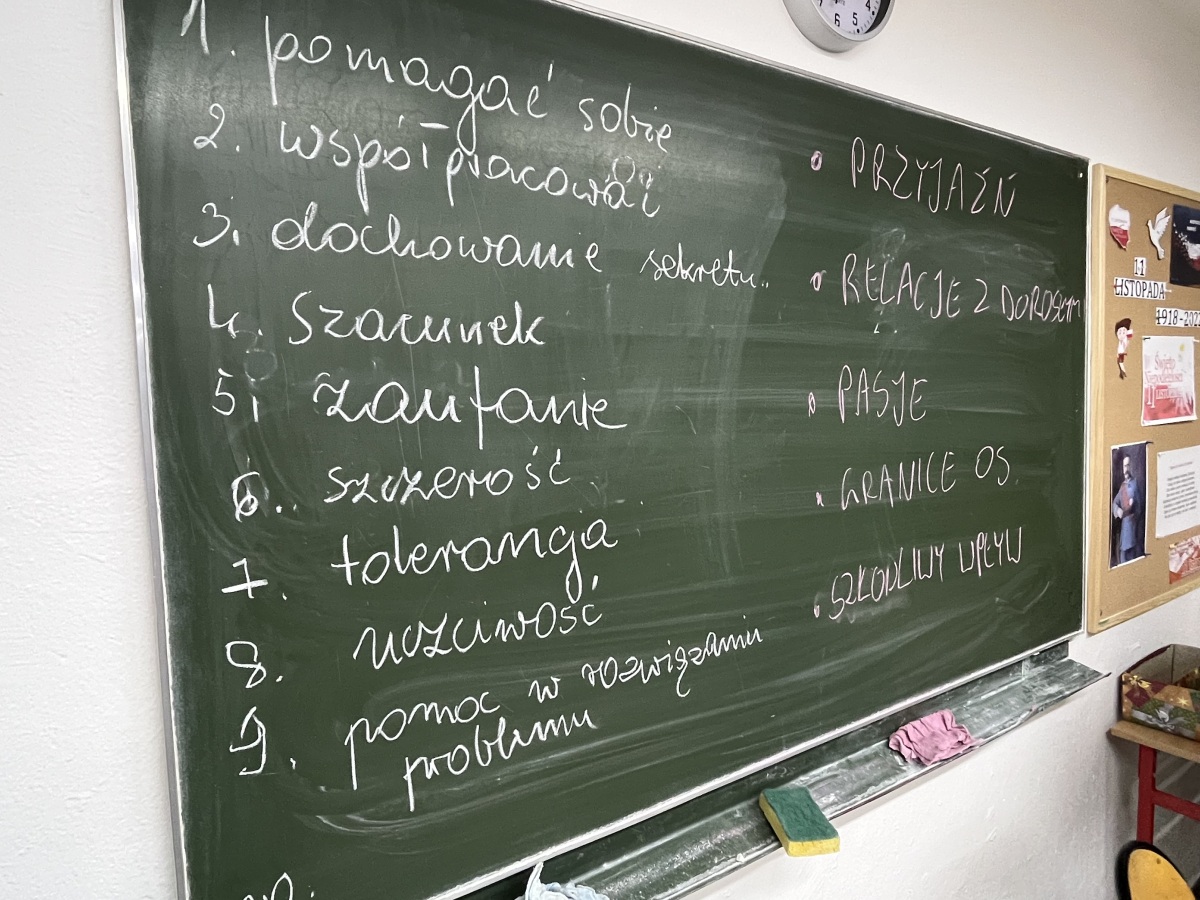 1. pomagać sobie
2. współpracować
3. dochowanie sekretu..
4. Szacunek
5. zaufanie
6. szczerość
7. tolerancja
8. uczciwość
9. pomoc w rozwiązaniu
problemu
10.
• PRZYJAŹŃ
• RELACJE Z DOROSŁYMI
• PASJE
• GRANICE OS.
• SZKODLIWY WPŁYW
11
LISTOPADA
1918-202
Święto
Niepodległości
11
6 5 4